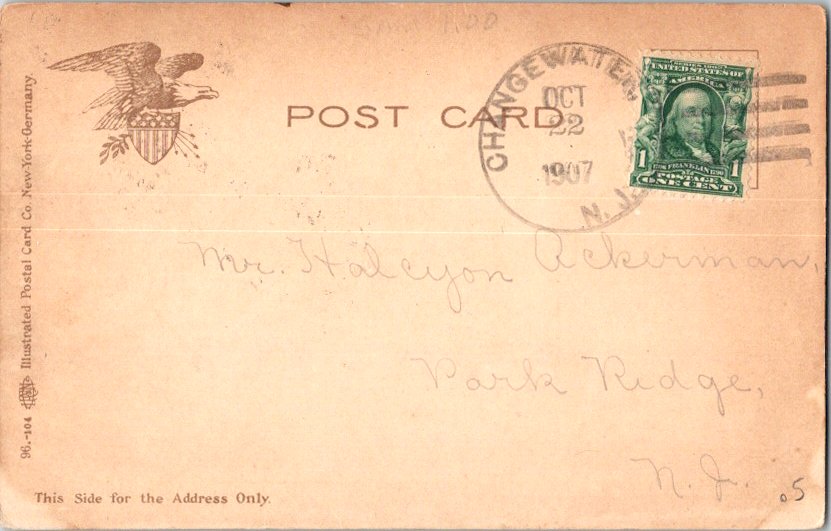 POST CARD
CHANGEWATER
OCT
22
1907
N. J.
SERIES 1902
UNITED STATES OF
AMERICA
1 1
FRANKLIN
POSTAGE
ONE CENT
Mr. Halcyon Ackerman,
Park Ridge,
N. J.
.05
This Side for the Address Only.
96.-104 Illustrated Postal Card Co. New-York-Germany.